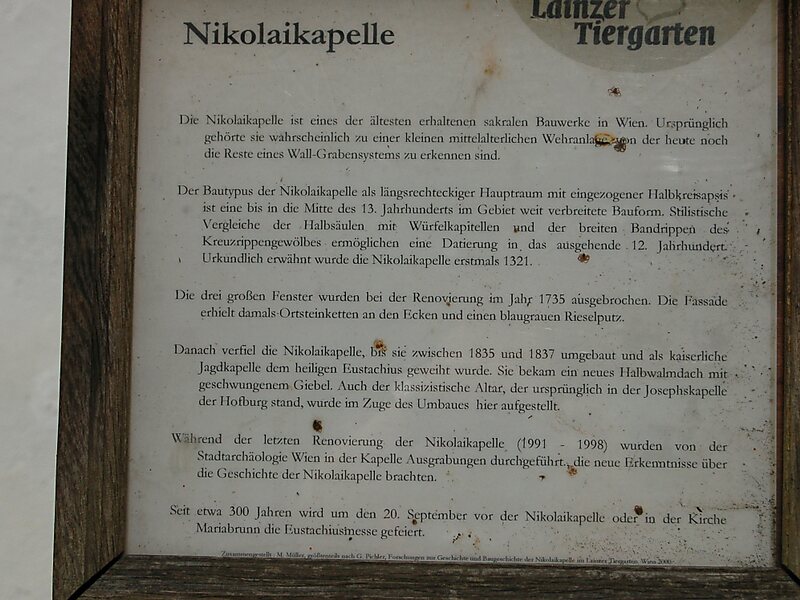 Lainzer
Tiergarten
Nikolaikapelle
Die Nikolaikapelle ist eines der ältesten erhaltenen sakralen Bauwerke in Wien. Ursprünglich
gehörte sie wahrscheinlich zu einer kleinen mittelalterlichen Wehranlage von der heute noch
die Reste eines Wall-Grabensystems zu erkennen sind.
Der Bautypus der Nikolaikapelle als längsrechteckiger Hauptraum mit eingezogener Halbkreisapsis
ist eine bis in die Mitte des 13. Jahrhunderts im Gebiet weit verbreitete Bauform. Stilistische
Vergleiche der Halbsäulen mit Würfelkapitellen und der breiten Bandrippen des
Kreuzrippengewölbes ermöglichen eine Datierung in das ausgehende 12. Jahrhundert.
Urkundlich erwähnt wurde die Nikolaikapelle erstmals 1321.
Die drei großen Fenster wurden bei der Renovierung im Jahr 1735 ausgebrochen. Die Fassade
erhielt damals Ortsteinketten an den Ecken und einen blaugrauen Rieselputz.
Danach verfiel die Nikolaikapelle, bis sie zwischen 1835 und 1837 umgebaut und als kaiserliche
Jagdkapelle dem heiligen Eustachius geweiht wurde. Sie bekam ein neues Halbwalmdach mit
geschwungenem Giebel. Auch der klassizistische Altar, der ursprünglich in der Josephskapelle
der Hofburg stand, wurde im Zuge des Umbaues hier aufgestellt.
Während der letzten Renovierung der Nikolaikapelle (1991 - 1998) wurden von der
Stadtarchäologie Wien in der Kapelle Ausgrabungen durchgeführt, die neue Erkenntnisse über
die Geschichte der Nikolaikapelle brachten.
Seit etwa 300 Jahren wird um den 20. September vor der Nikolaikapelle oder in der Kirche
Mariabrunn die Eustachiusmesse gefeiert.
Zusammengestellt: M. Müller, größtenteils nach G. Pichler, Forschungen zur Geschichte und Baugeschichte der Nikolaikapelle im Lainzer Tiergarten. Wien 2000